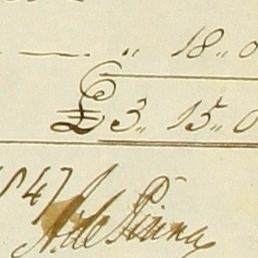 — " 18 " 0
£3 " 15 " 0
1847
A. de Pinna